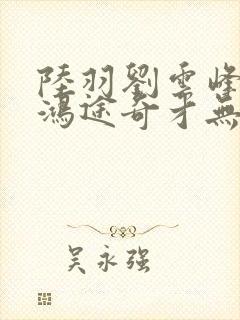 陸羽劉雲峰
鴻途奇才無
吴永强